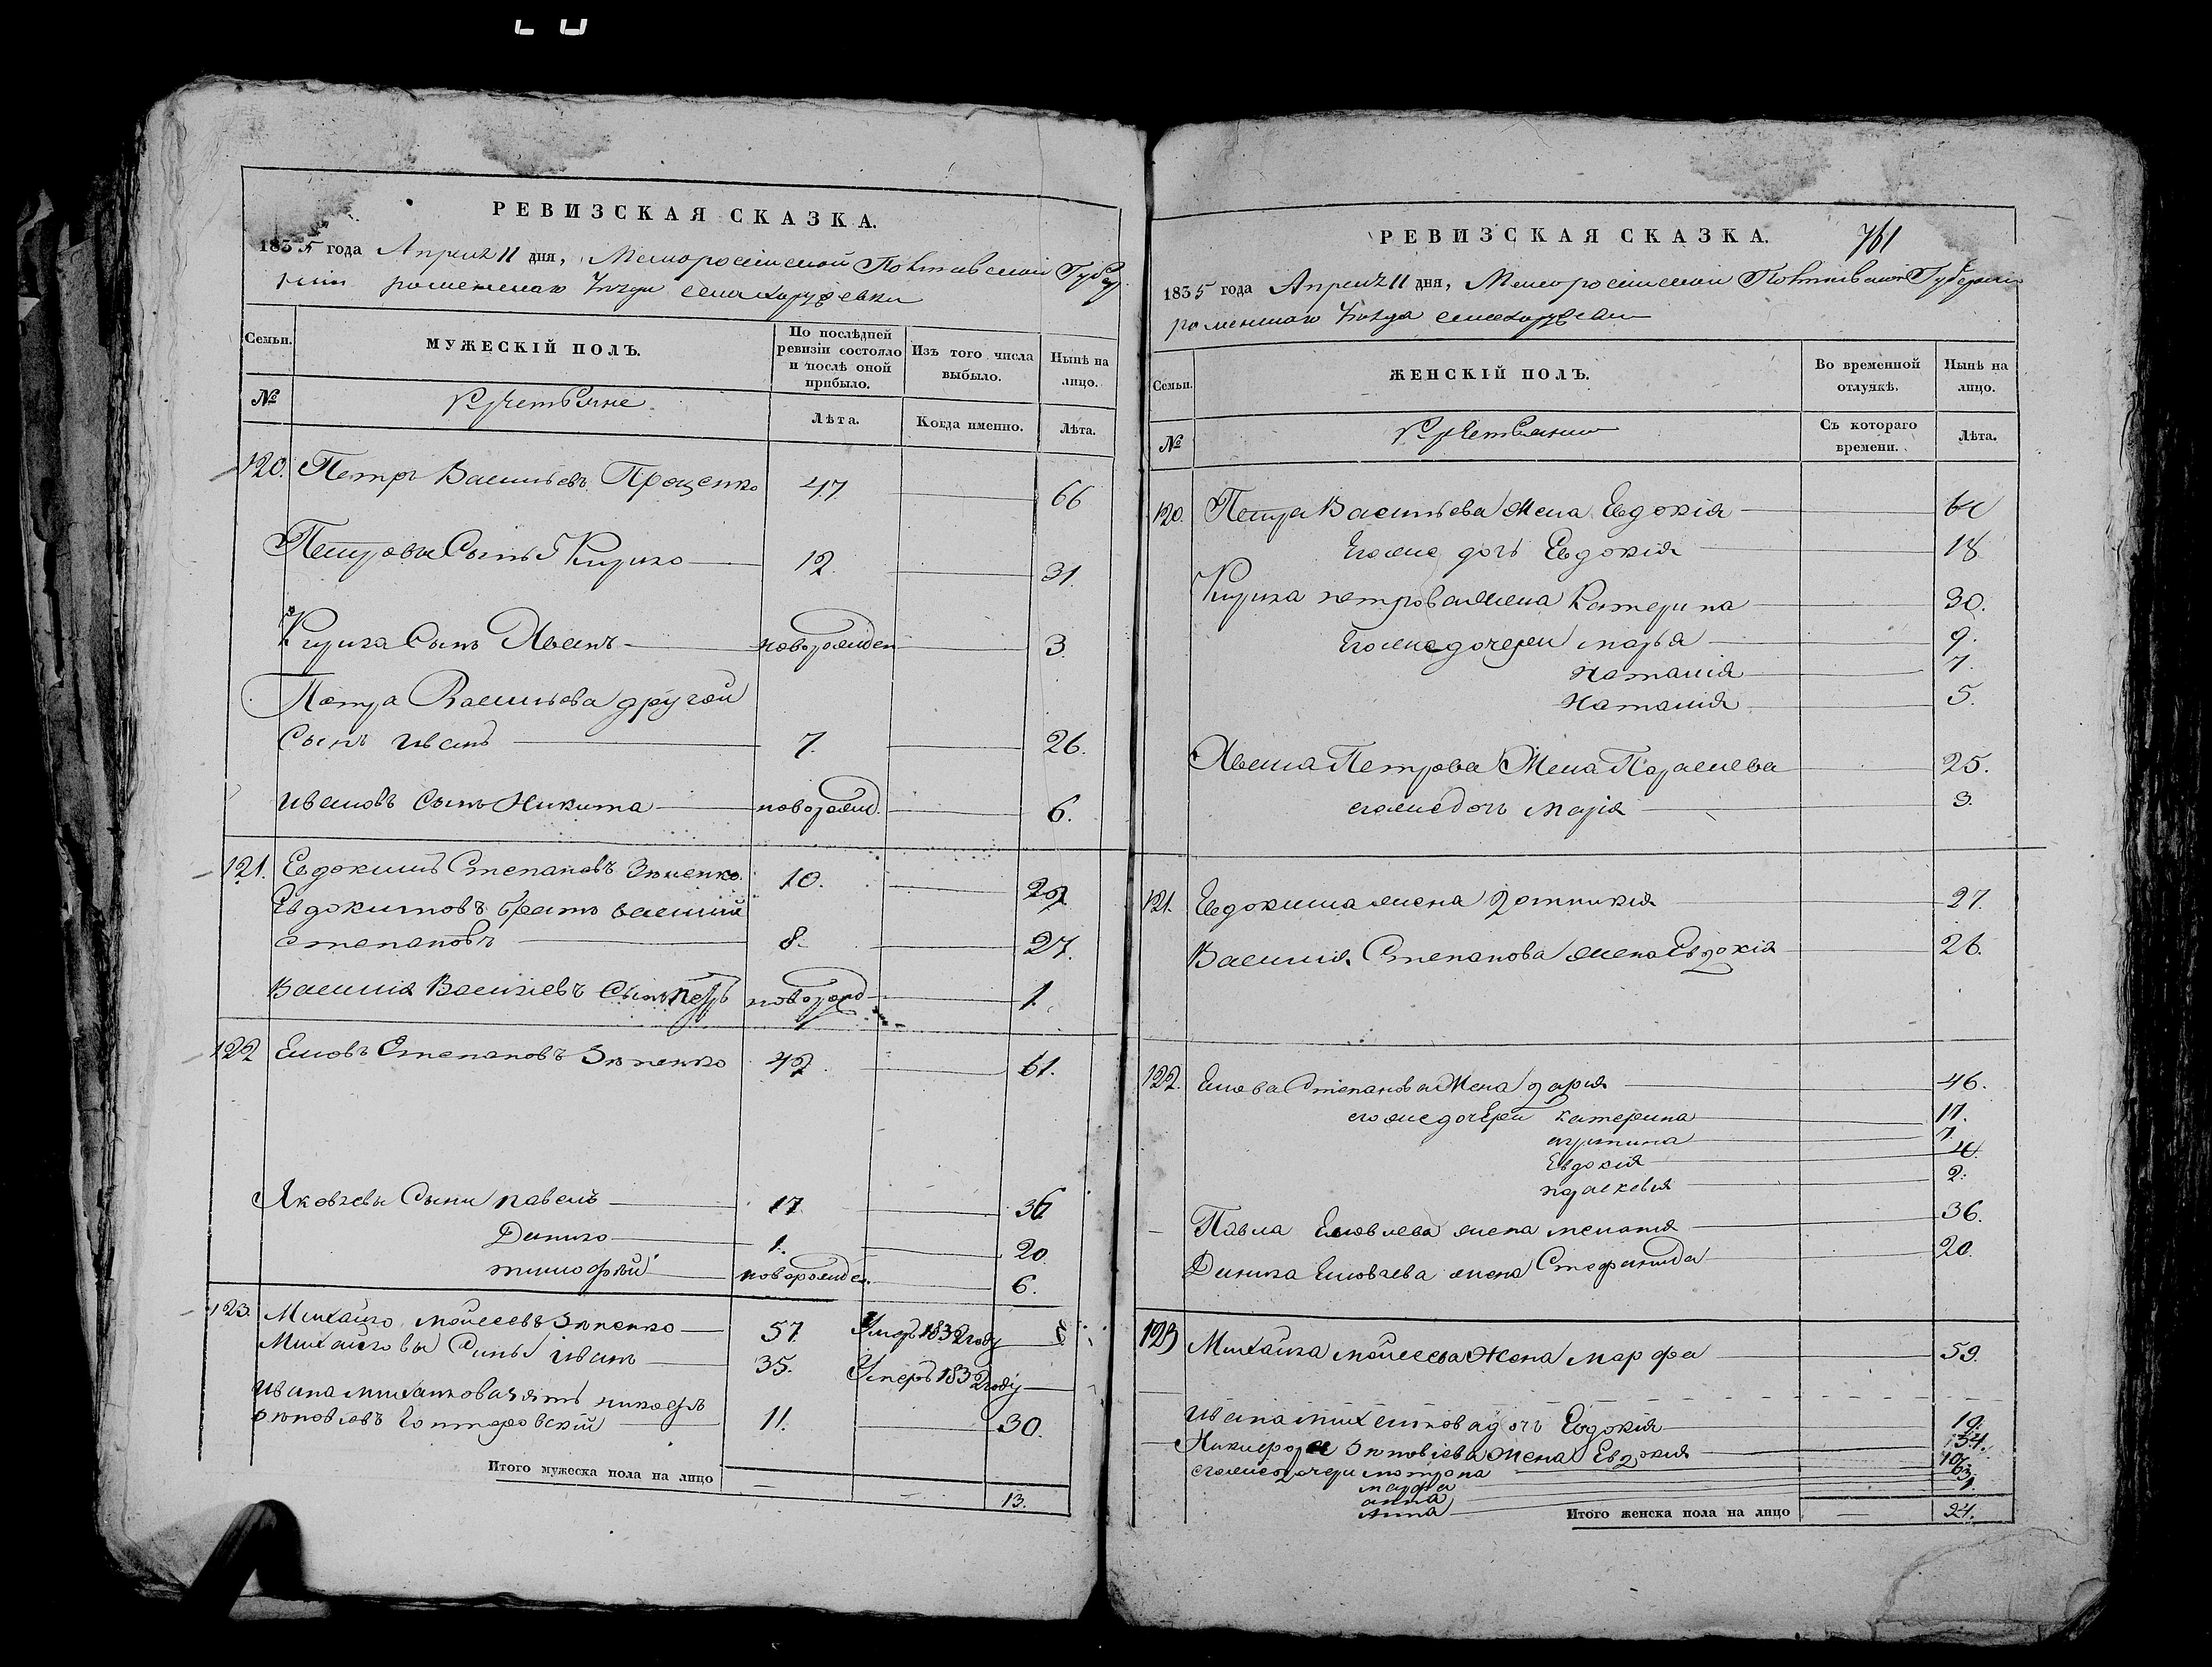 РЕВИЗСКАЯ СКАЗКА.
1835 года Апреля 11 дня, Малороссійской Полтавской Губер
ніи роменскаго Повѣта села
Семьи.
МУЖЕСКІЙ ПОЛЪ.
По послѣдней ревизіи состояло и послѣ оной прибыло.
Изъ того числа выбыло.
Нынѣ на лицо.
№
Крестьяне
Лѣта.
Когда именно.
Лѣта.
120. Петръ Васильевъ Проценко 47 66
Петровы Сыны 1 Кирило 12 31.
Кирила Сынъ Иванъ новорожден 3
Петра Васильева другой
Сынъ иванъ 7. 26.
ивановъ Сынъ Никита новорожд. 6.
121. Евдокимъ Степановъ Зѣненко 10. 29
Евдокимовъ братъ василій
степановъ 8. 27.
Василія Васильевъ Сынъ петръ новорожд 1.
122 Яковъ Степановъ Зѣненко 42 61.
Яковлевы Сыны павелъ 17 36
Данило 1. 20
тимофѣй новорожден. 6.
123. Михайло моисеевъ Зѣненко 57. Умеръ 1832 году
Михайловы Сынъ иванъ 35. Умеръ 1832 году
Ивана михайлова зять никифоръ
зѣновіевъ 11. 30.
Итого мужеска пола на лицо — — 13.
РЕВИЗСКАЯ СКАЗКА.
761
1835 года Апреля 11 дня, Малороссійской Полтавской Губерніи
роменскаго Повѣта села
Семьи.
ЖЕНСКІЙ ПОЛЪ.
Во временной отлучкѣ.
Нынѣ на лицо.
№
Крестьянки
Съ котораго времени.
Лѣта.
120. Петра Васильева Жена Евдокія
Егоже дочь Евдокія 18
Кирила петрова жена Катерина 30.
Егоже дочери марья 9.
Наталія 7.
Наталія 5.
Ивана Петрова Жена Параскева 25.
егоже дочь марія 3.
121. Евдокима жена 27.
Василія Степанова жена Евдокія 26.
122. Якова Степанова Жена дарія 46.
егоже дочери катерина 17.
7.
Евдокія 4.
2.
Павла Яковлева жена меланія 36.
Данила Яковлева жена Стефанида 20.
123 Михайла моисеева Жена марфа 59.
Ивана михайлова дочь Евдокія 19.
Никифора Зѣновіева Жена Евдокія 34.
егоже дочери матрона 10.
марфа
анна
Анна
Итого женска пола на лицо — 24.